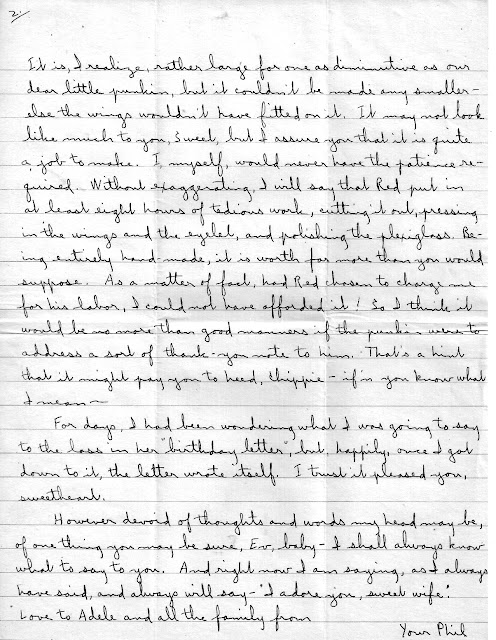 2.
It is, I realize, rather large for one as diminutive as our
dear little punkin, but it couldn't be made any smaller-
else the wings wouldn't have fitted on it. It may not look
like much to you, Sweet, but I assure you that it is quite
a job to make. I, myself, would never have the patience re-
quired. Without exaggerating, I will say that Red put in
at least eight hours of tedious work, cutting it out, pressing
in the wings and the eyelet, and polishing the plexiglass. Be-
ing entirely hand-made, it is worth far more than you would
suppose. As a matter of fact, had Red chosen to charge me
for his labor, I could not have afforded it! So I think it
would be no more than good manners if the punkin were to
address a sort of thank-you note to him. That's a hint
that it might pay you to heed, Chippie - if'n you know what
I mean-
For days, I had been wondering what I was going to say
to the lass in her "birthday letter", but, happily, once I got
down to it, the letter wrote itself. I trust it pleased you,
sweetheart.
However devoid of thoughts and words my head may be,
of one thing you may be sure, Ev, baby - I shall always know
what to say to you. And right now I am saying, as I always
have said, and always will say - "I adore you, sweet wife!"
Love to Adele and all the family from
Your Phil